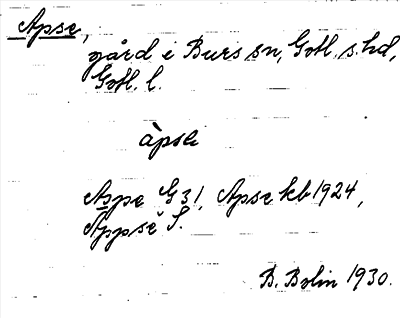 Apse,
gård i Burs sn, Gotl. s. hd,
Gotl. l.
àpse
Aspe G 31, Apse kb 1924,
Äppse S.
B. Bolin 1930.